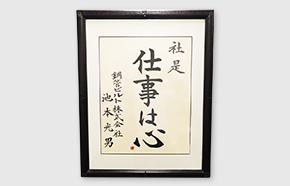 社是
仕事は心
鋼管ビルト株式会社
池本光男